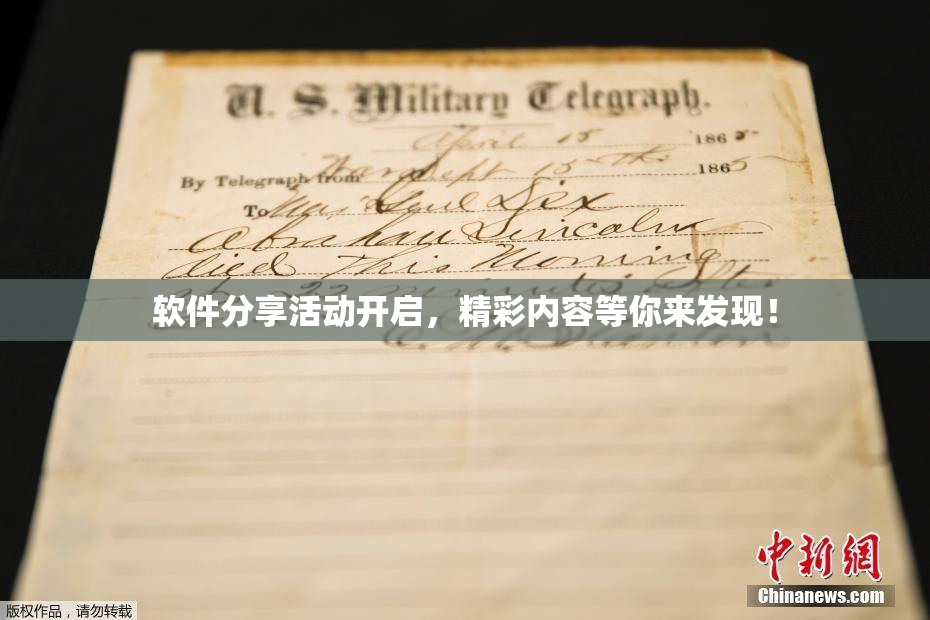 U. S. Military Telegraph.
April 15 1865
By Telegraph from War Dept 15th 1865
To Maj Genl Dix
Abraham Lincoln
died This Morning
at 22 minutes after
软件分享活动开启，精彩内容等你来发现！
E. M. Stanton
中新網
Chinanews.com
版权作品，请勿转载